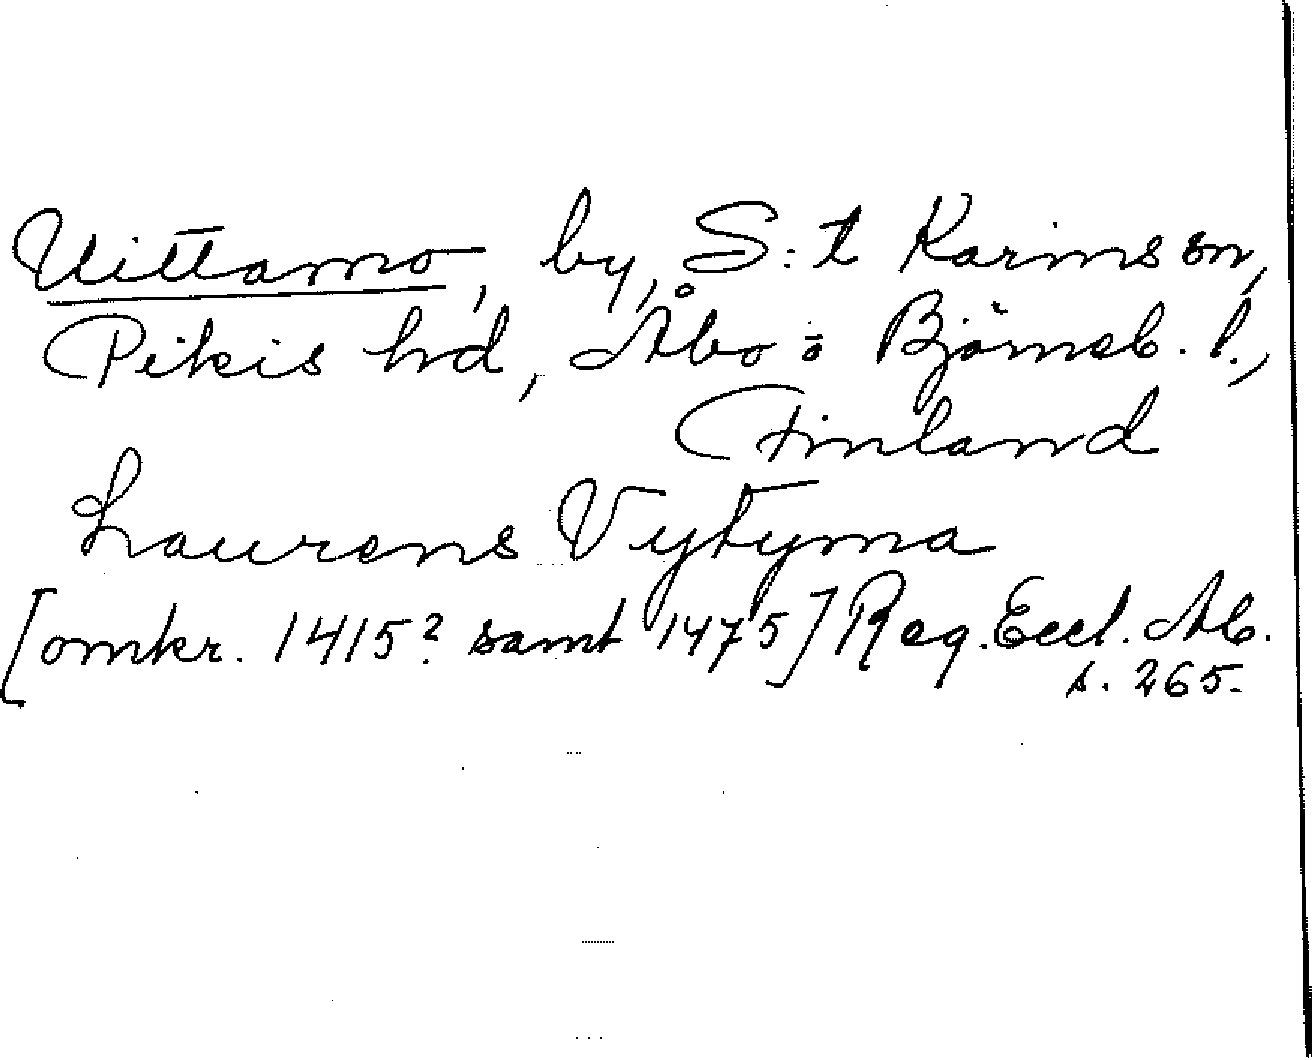 Uittamo, by, S:t Karins sn,
Pikis hd, Åbo o Björneb. l.,
Finland
Laurens Vytyma
[omkr. 1415? samt 1475] Reg. Eccl. Ab.
s. 265.